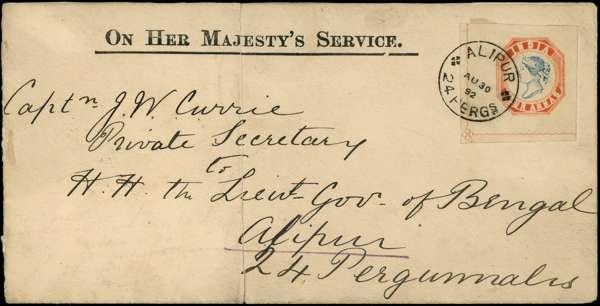 ON HER MAJESTY'S SERVICE.
ALIPUR
AU 30
92
24 PERGS
INDIA
Captn J. W. Currie
Private Secretary
to
H. H. the Lieut- Govr of Bengal
Alipur
24 Pergunnahs